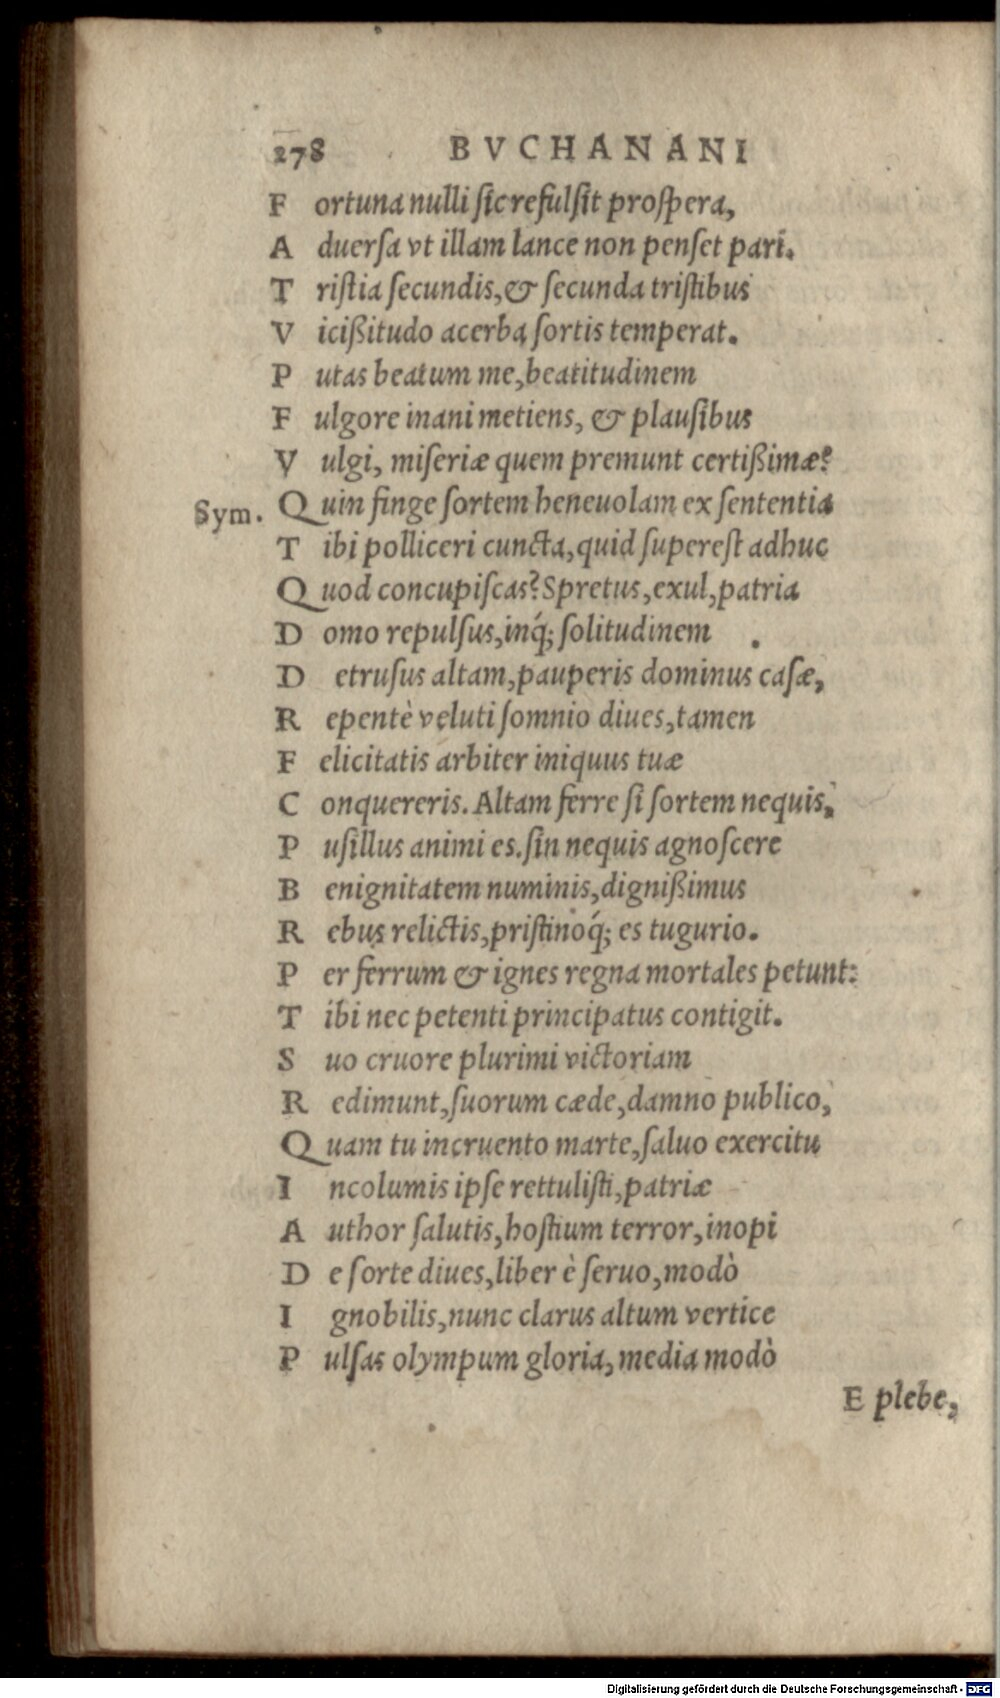 278 BVCHANANI
F ortuna nulli ſic refulſit proſpera,
A duerſa vt illam lance non penſet pari.
T riſtia ſecundis, & ſecunda triſtibus
V icißitudo acerba ſortis temperat.
P utas beatum me, beatitudinem
F ulgore inani metiens, & plauſibus
V ulgi, miſeriæ quem premunt certißimæ?
Sym. Q uin finge ſortem beneuolam ex ſententia
T ibi polliceri cuncta, quid ſupereſt adhuc
Q uod concupiſcas? Spretus, exul, patria
D omo repulſus, inq́; ſolitudinem
D etruſus altam, pauperis dominus caſæ,
R epentè veluti ſomnio diues, tamen
F elicitatis arbiter iniquus tuæ
C onquereris. Altam ferre ſi ſortem nequis,
P uſillus animi es. ſin nequis agnoſcere
B enignitatem numinis, dignißimus
R ebus relictis, priſtinoq́; es tugurio.
P er ferrum & ignes regna mortales petunt:
T ibi nec petenti principatus contigit.
S uo cruore plurimi victoriam
R edimunt, ſuorum cæde, damno publico,
Q uam tu incruento marte, ſaluo exercitu
I ncolumis ipſe rettuliſti, patriæ
A uthor ſalutis, hoſtium terror, inopi
D e ſorte diues, liber è ſeruo, modò
I gnobilis, nunc clarus altum vertice
P ulſas olympum gloria, media modò
E plebe,
Digitalisierung gefördert durch die Deutsche Forschungsgemeinschaft - DFG